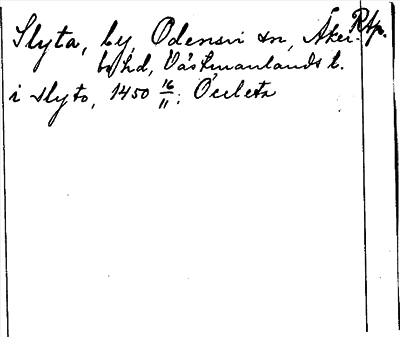 Slyta, by, Odensvi sn, Åker-
bo hd, Västmanlands l.
Rtp.
i slyto, 1450 16/11: